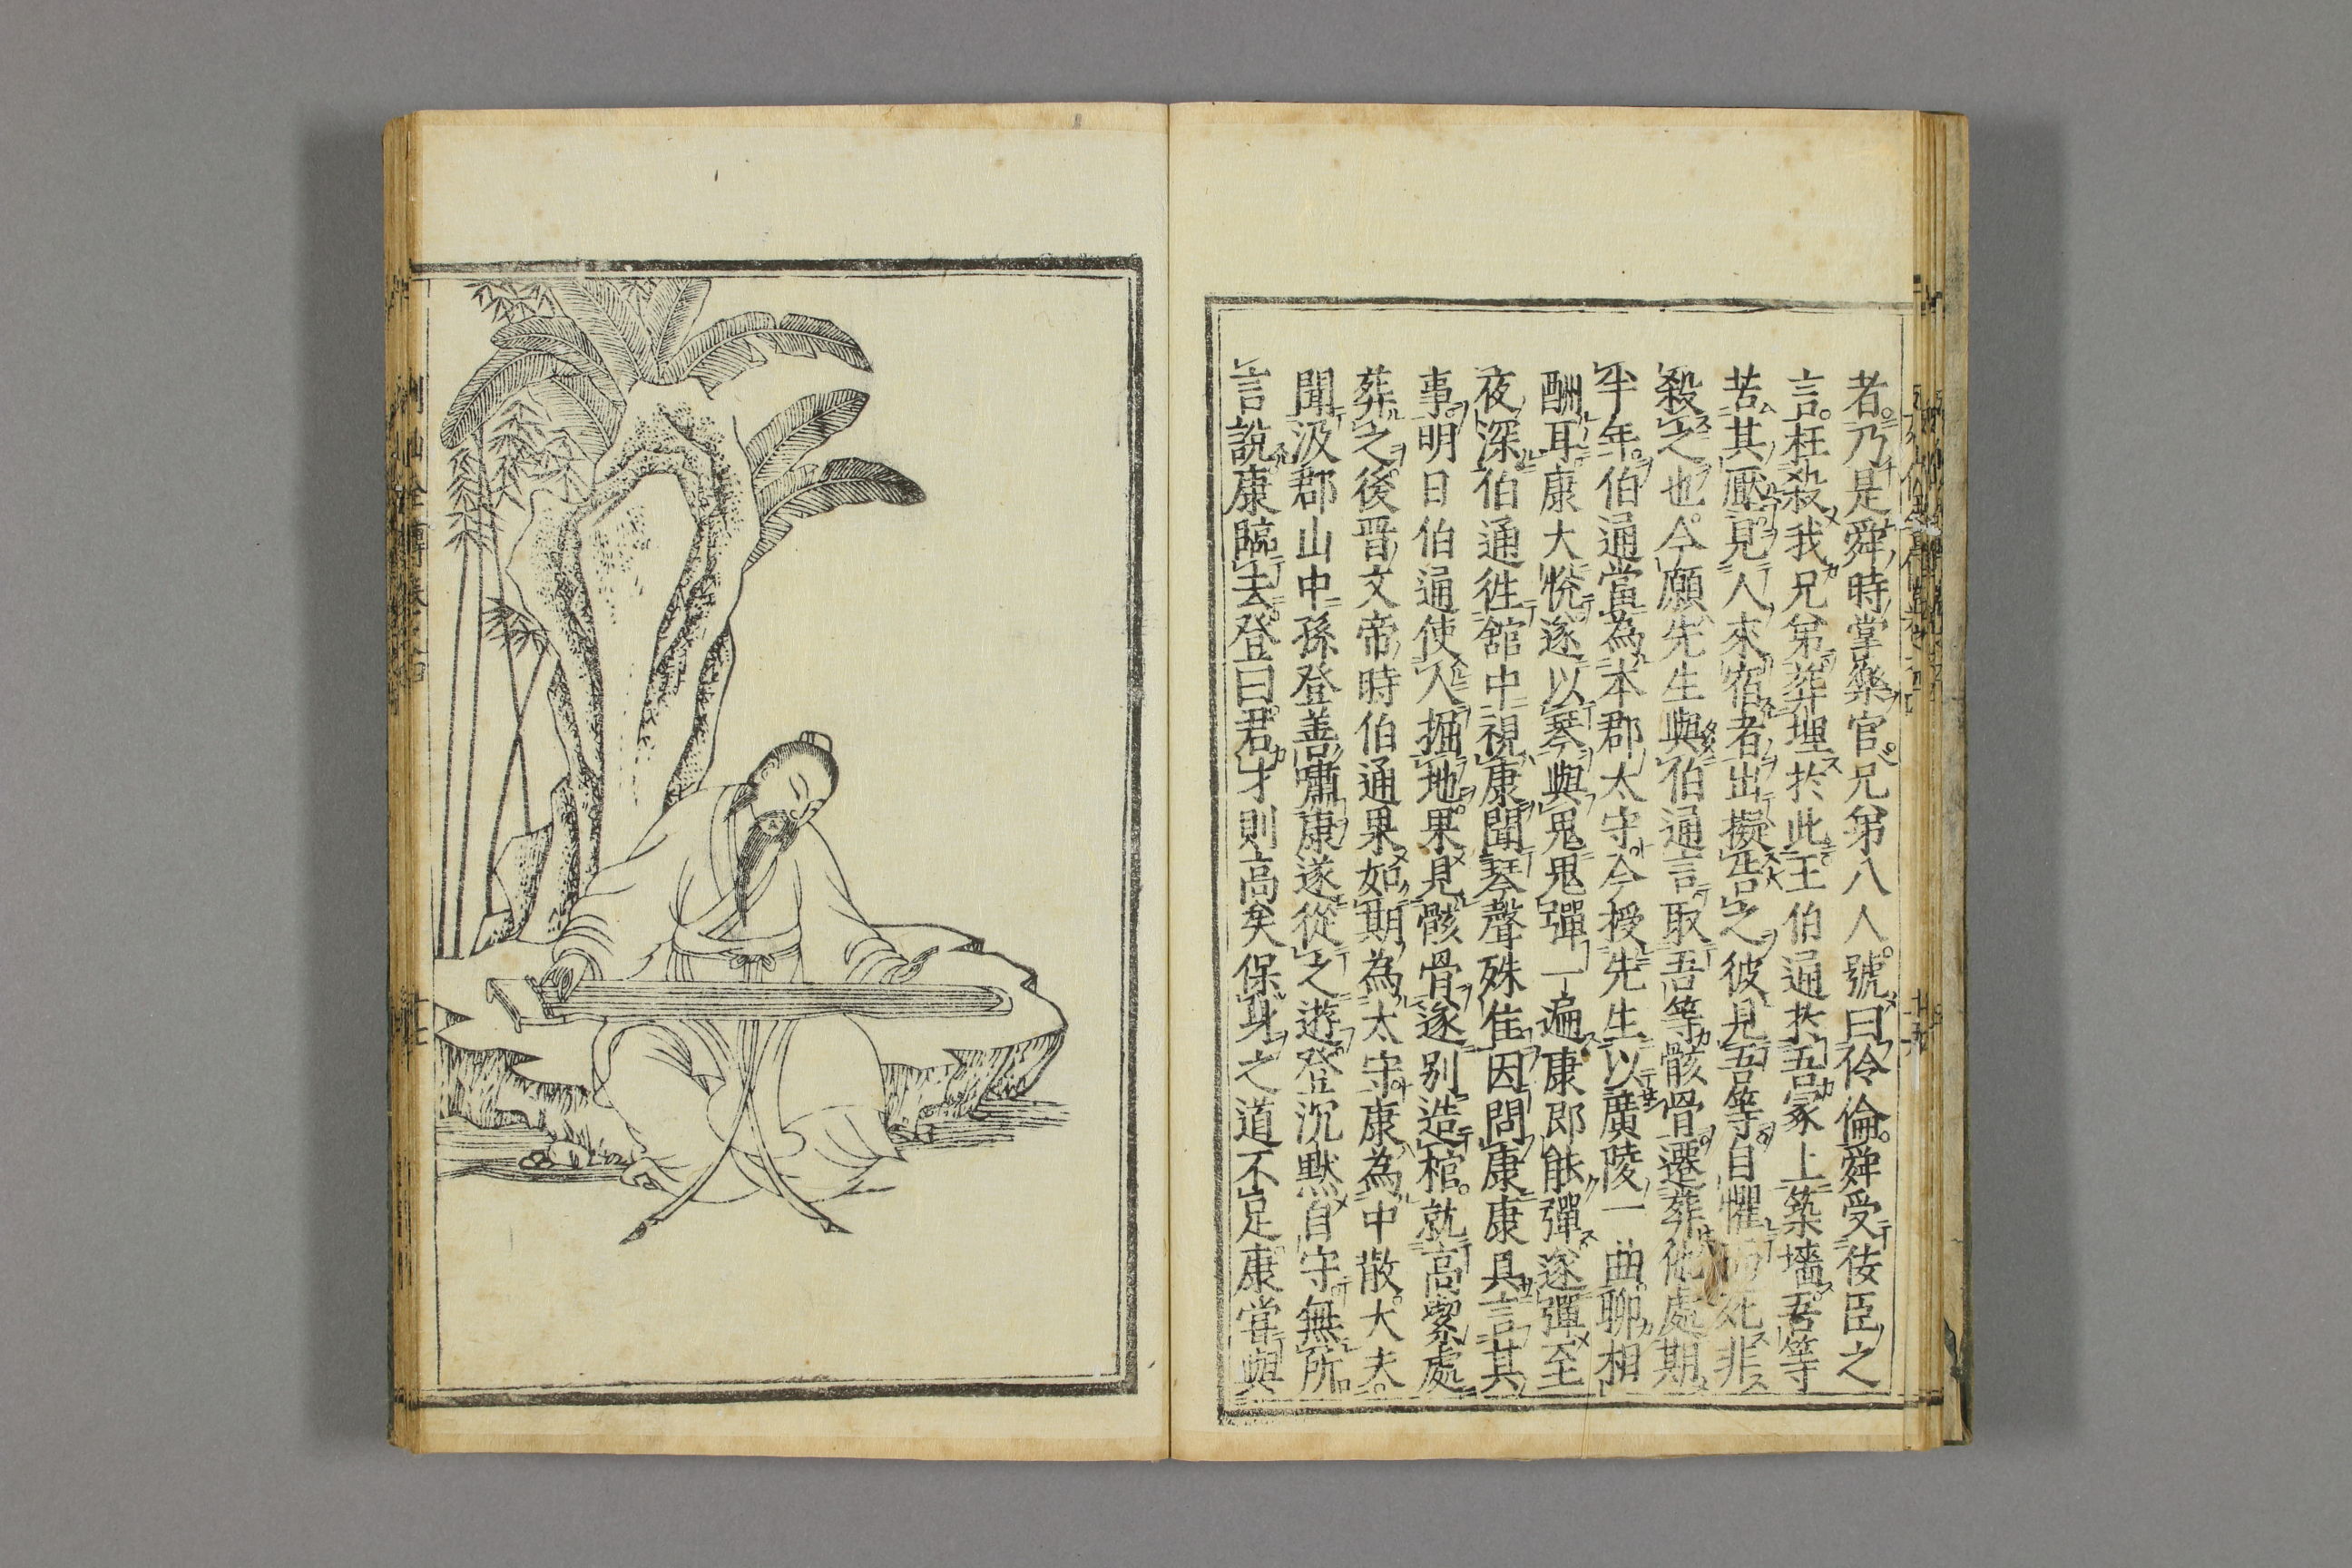 者乃是舜時掌樂官兄弟八人號曰伶倫舜受佞臣之
言枉殺我兄弟葬埋於此王伯通於吾冢上築墻吾等
苦其壓見人來宿者出擬告之彼見吾等自懼死非
殺之也今願先生與伯通言取吾等骸骨遷葬他處期
半年伯通當為本郡太守今授先生以廣陵一曲聊相
酬耳康大悅遂以琴與鬼鬼彈一遍康即能彈遂彈至
夜深伯通徃舘中視康聞琴聲殊佳因問康康具言其
事明日伯通使人掘地果見骸骨遂別造棺就高㓗處
葬之後晋文帝時伯通果如期為太守康為中散大夫
聞汲郡山中孫登善嘯康遂從之遊登沉默自守無所
言說康臨去登曰君才則高矣保身之道不足康嘗與